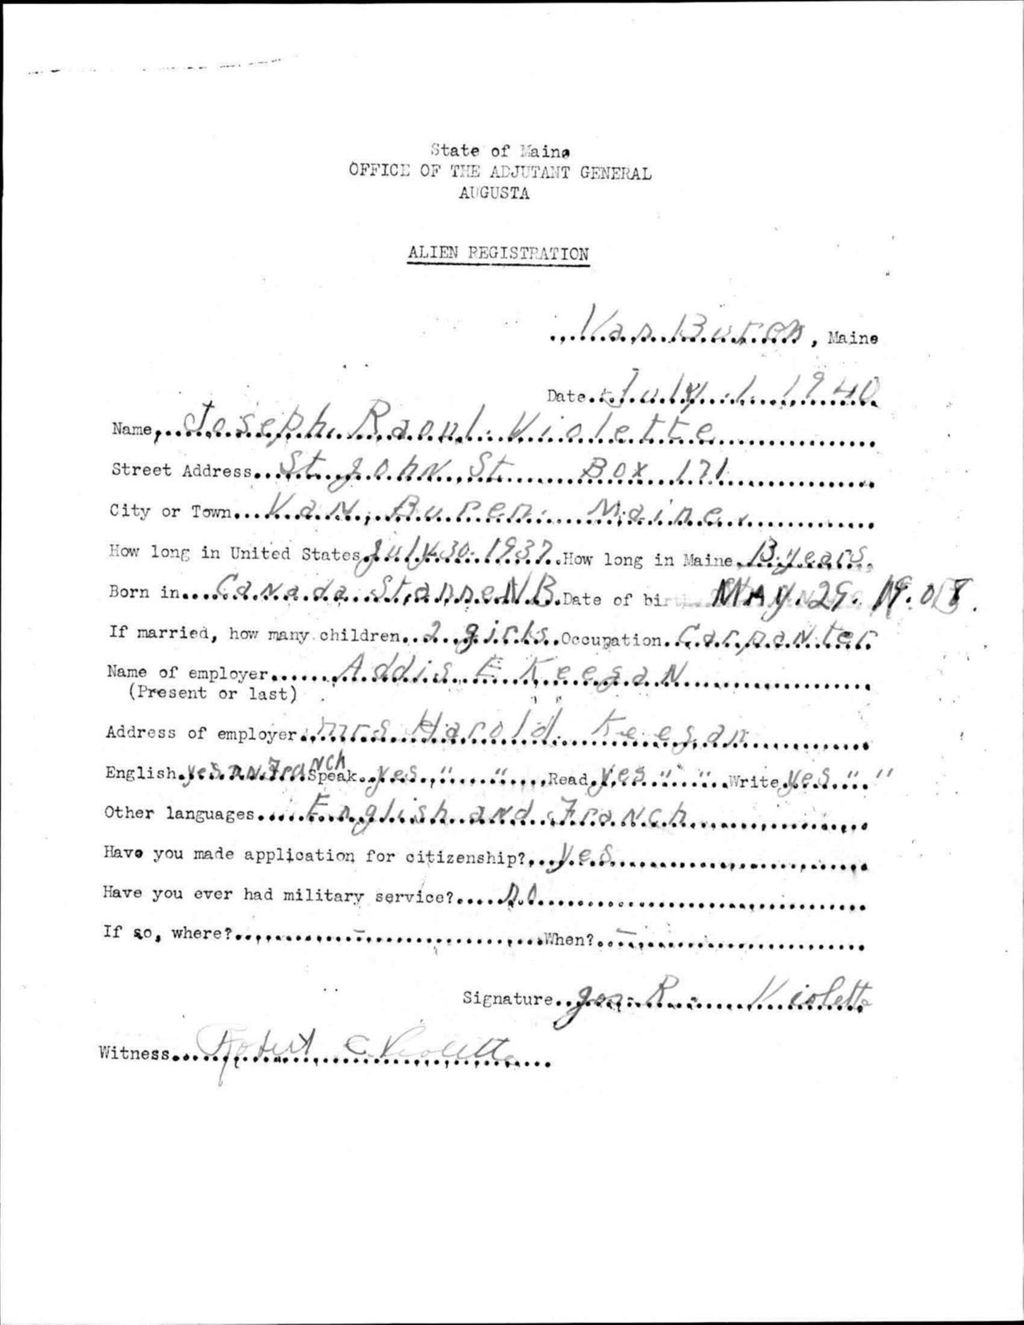 State of Maine
OFFICE OF THE ADJUTANT GENERAL
AUGUSTA
ALIEN REGISTRATION
Van Buren, Maine
Date July 1 1940
Name, Joseph Raoul Violette
Street Address St John St Box 171
City or Town Van Buren Maine
How long in United States July 30 1937 How long in Maine 13 years
Born in Canada St anne NB Date of birth MAY. 29. 1908.
If married, how many children 2 girls Occupation Carpanter
Name of employer Addis E Keegan
(Present or last)
Address of employer mrs Harold Keegan
English yes an Franch Speak yes " " Read yes " " Write yes " "
Other languages English and Franch
Have you made application for citizenship? yes
Have you ever had military service? no
If so, where? - When? -
Signature Jos. R. Violette
Witness Robert C Violette